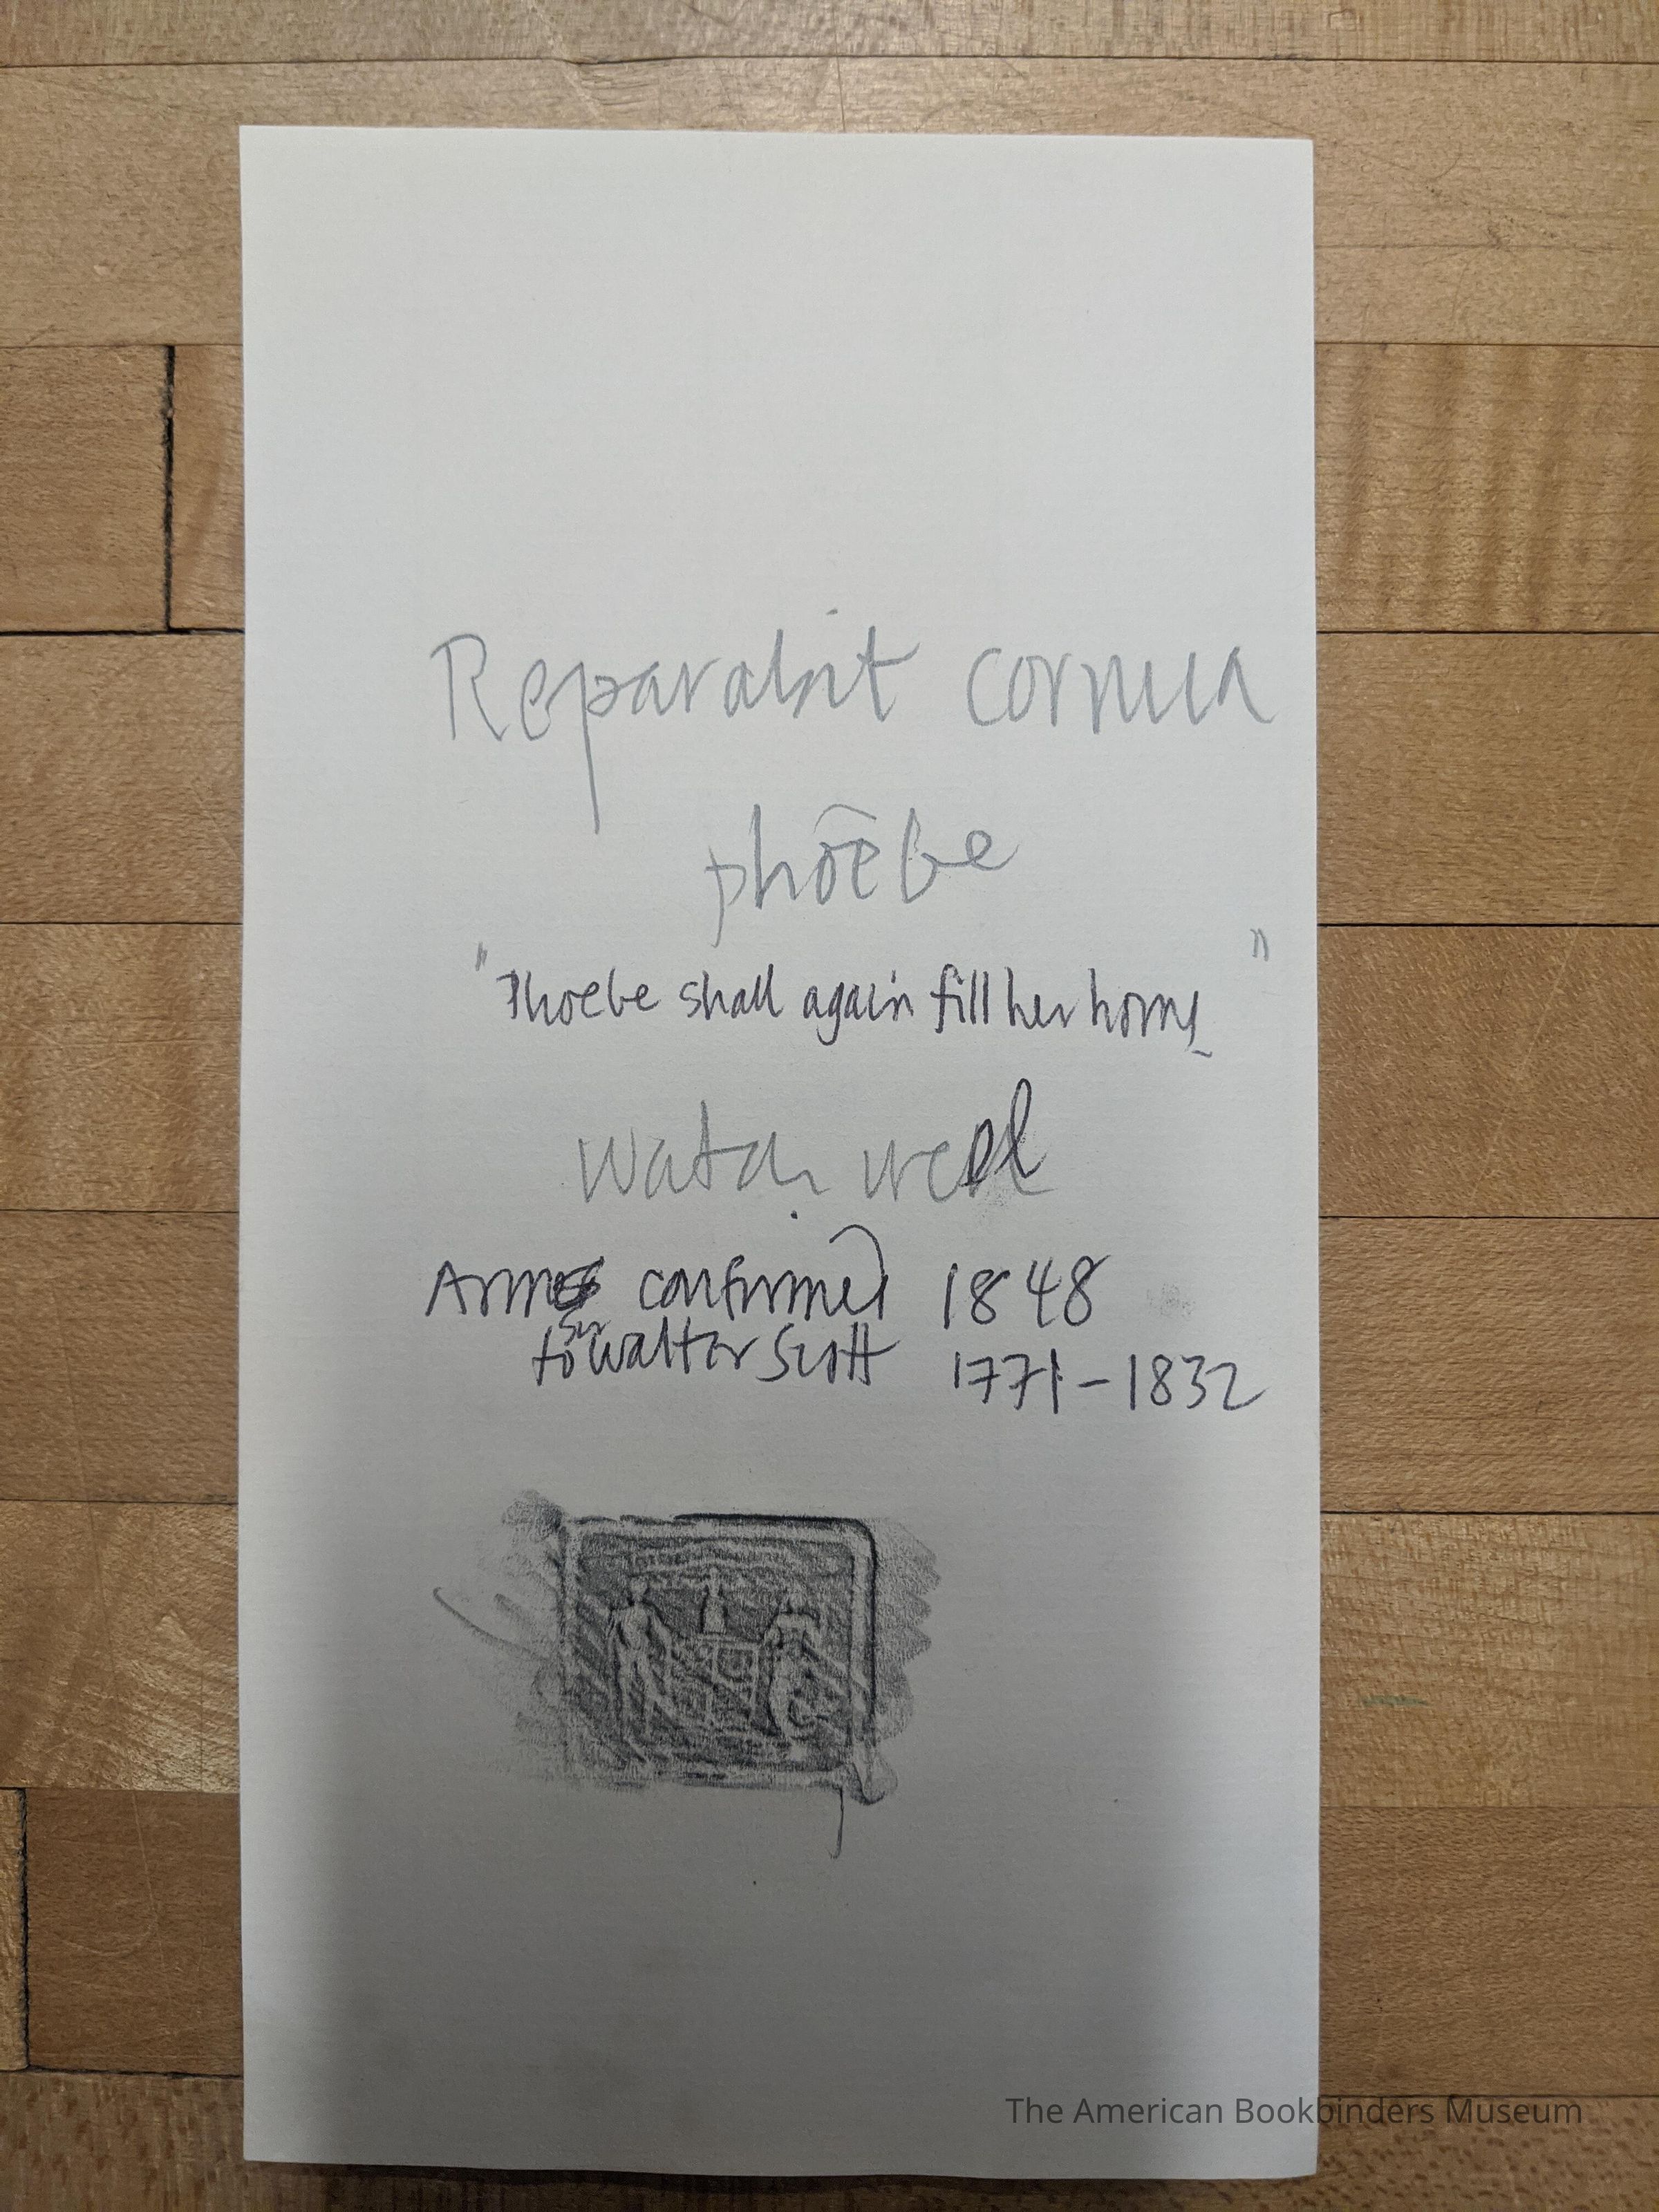 Reparabit cornua
phoebe
"Phoebe shall again fill her horns"
Watch well
Arms confirmed 1848
to Sir Walter Scott 1771-1832
The American Bookbinders Museum